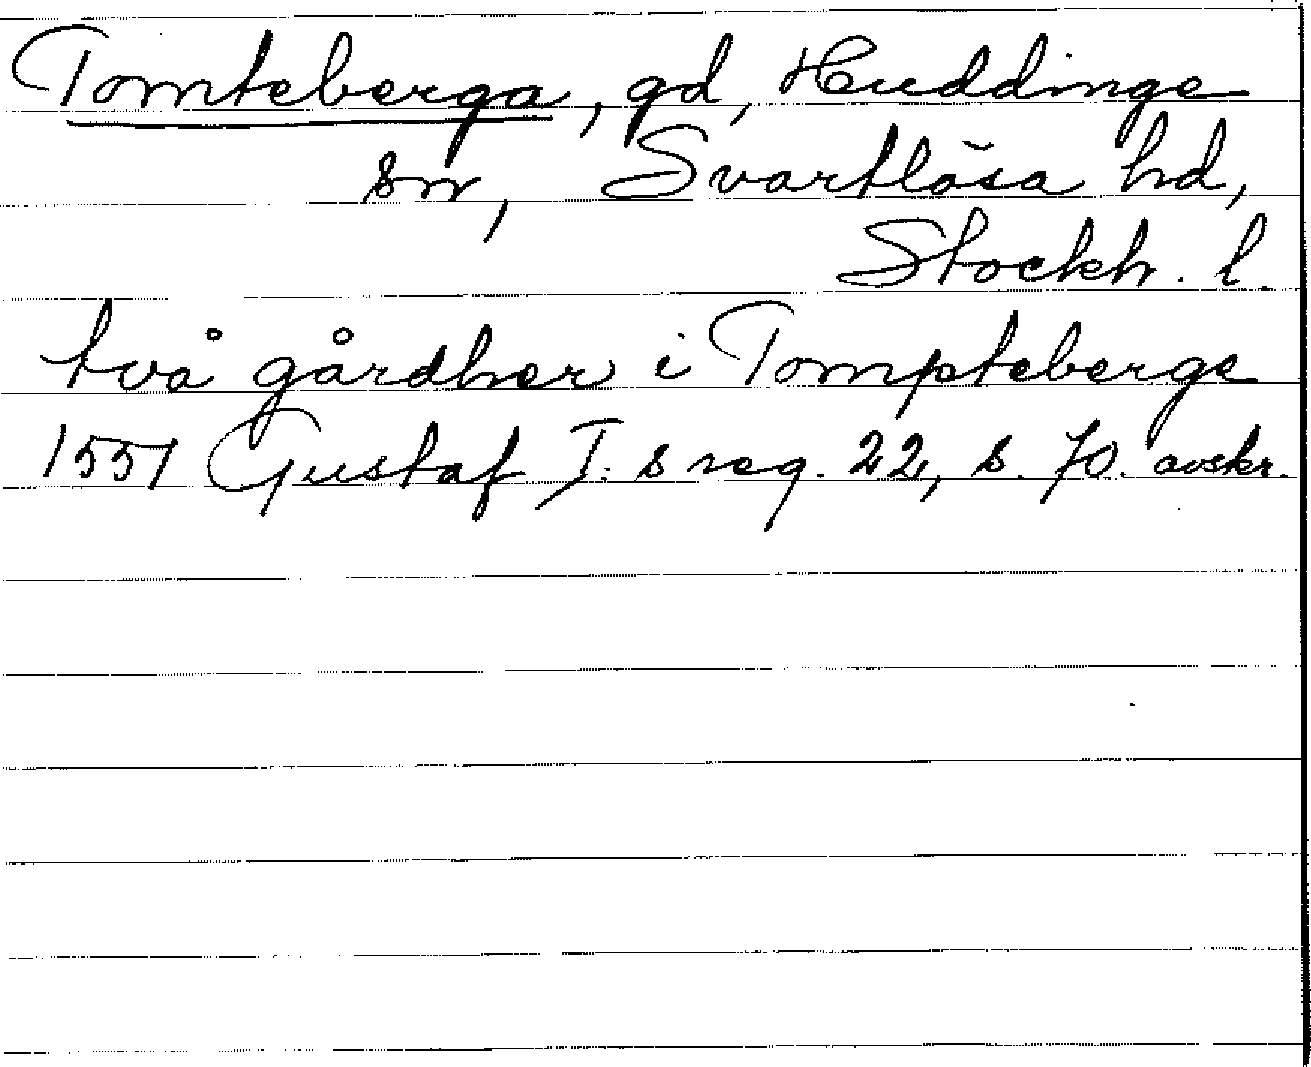 Tomteberga, gd, Huddinge
sn, Svartlösa hd,
Stockh. l.
två gårdher i Tompteberge
1551 Gustaf I:s reg. 22, s. 70. avskr.